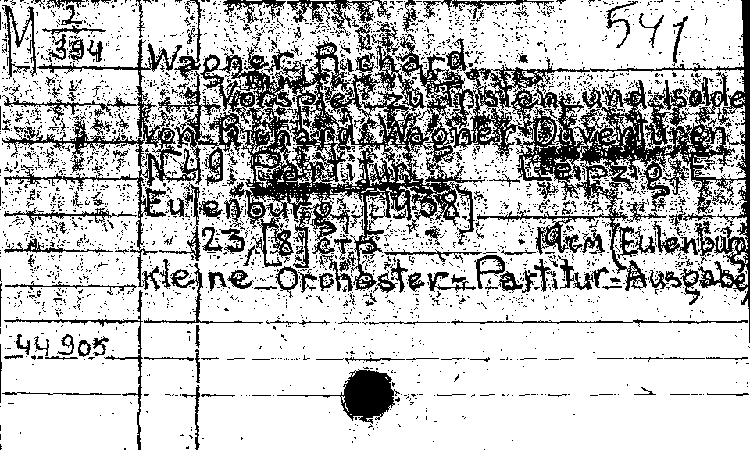 M 2/394
541
Wagner, Richard.
Vorspiel zu Tristan und Isolde
von Richard Wagner. Ouvertüren
N 49 Partitur. Leipzig, E.
Eulenburg, [1908]
23, [8] стр 19 см (Eulenburg
kleine Orchester-Partitur-Ausgabe,
44 905